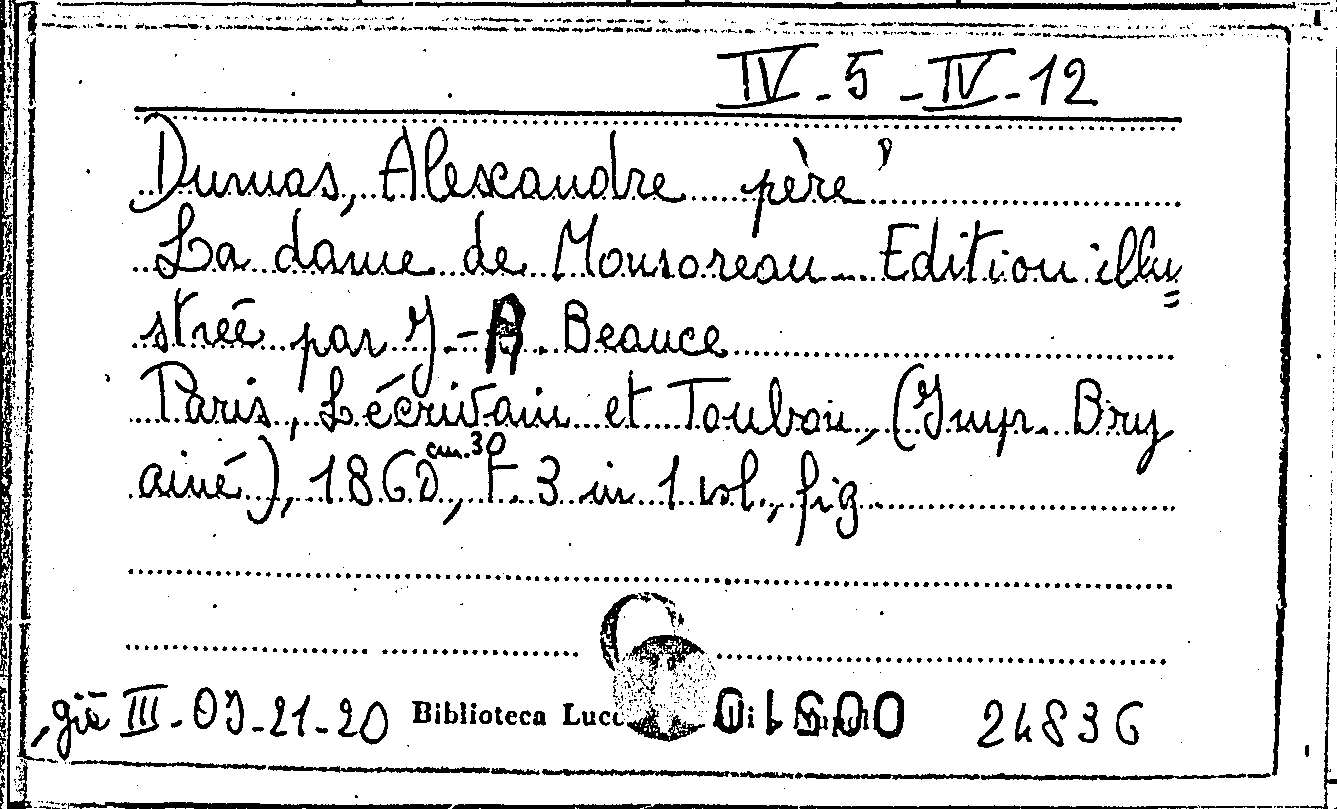 IV-5-IV-12
Dumas, Alexandre père
La dame de Monsoreau. Edition illu=
streé par J.-A. Beauce
Paris, Lécrivain et Toubon, (Impr. Bry
ainé), 1860, cm.30 t. 3 in 1 vol., fig.
già III-OJ-21-20 Biblioteca 24836